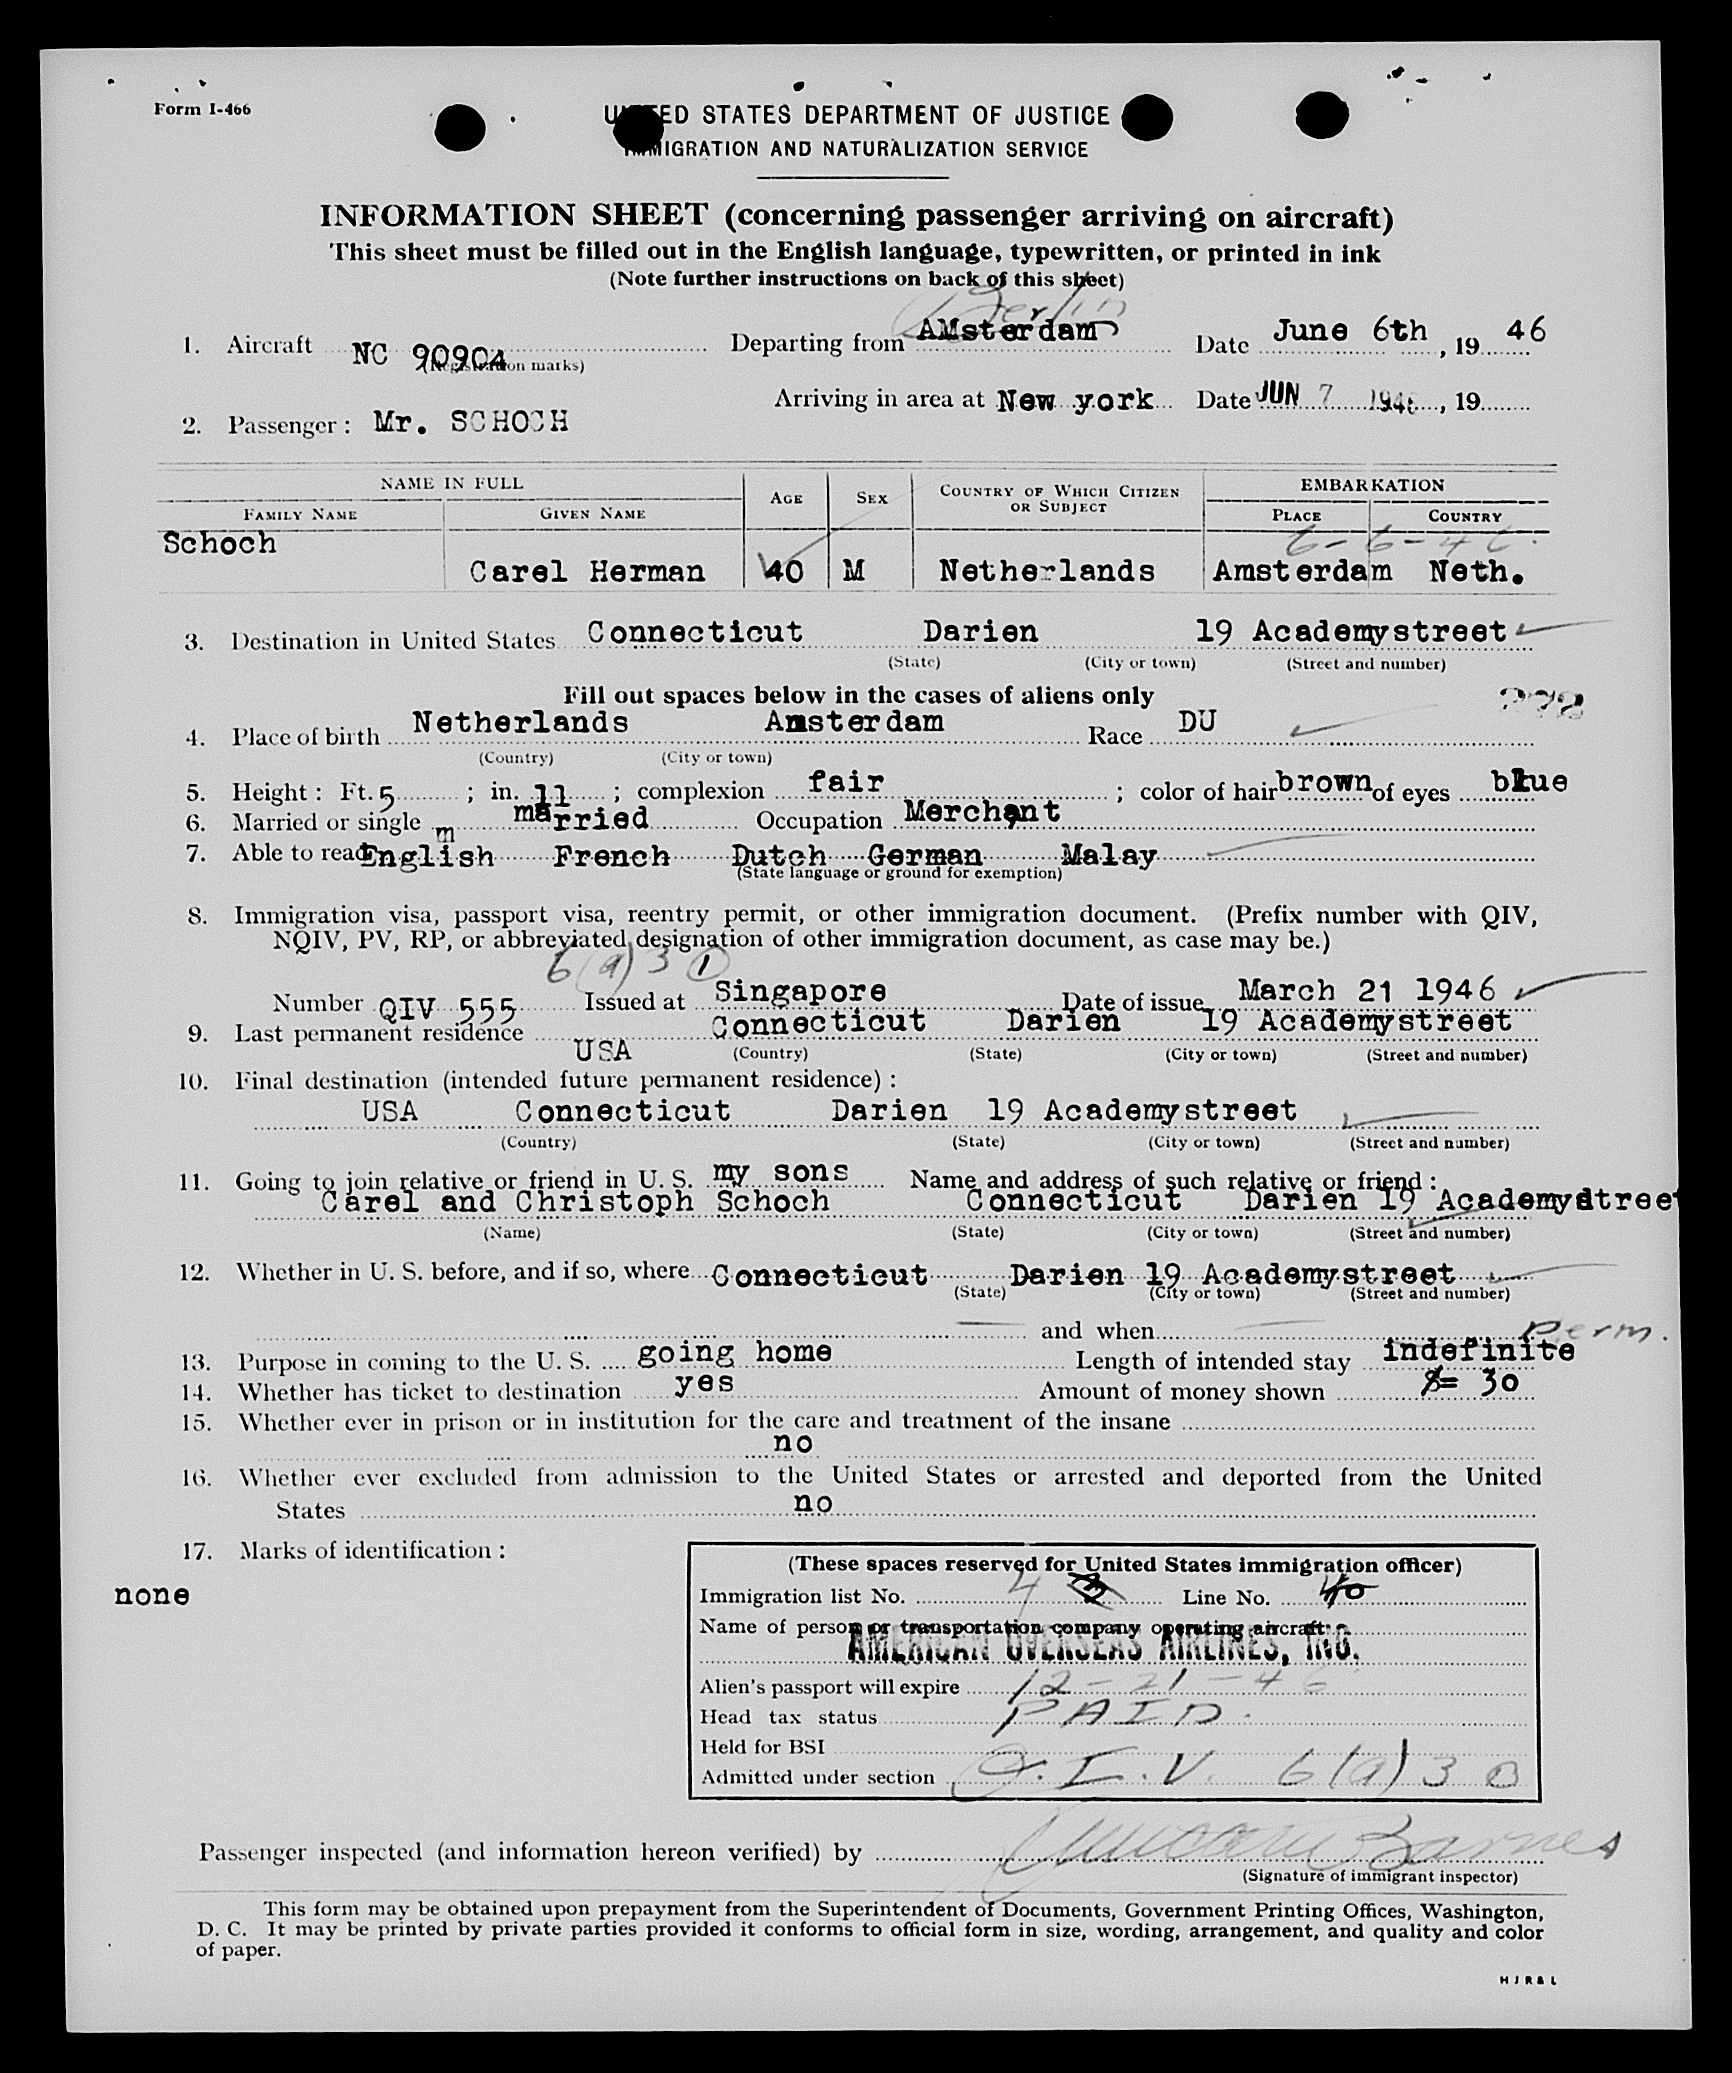 Form I-466
UNITED STATES DEPARTMENT OF JUSTICE
IMMIGRATION AND NATURALIZATION SERVICE
INFORMATION SHEET (concerning passenger arriving on aircraft)
This sheet must be filled out in the English language, typewritten, or printed in ink
(Note further instructions on back of this sheet)
Berlin
1. Aircraft NC 90904 Departing from AMsterdam Date June 6th, 1946
(Registration marks)
Arriving in area at New york Date JUN 7 1946, 19
2. Passenger: Mr. SCHOCH
NAME IN FULL AGE SEX COUNTRY OF WHICH CITIZEN OR SUBJECT EMBARKATION
FAMILY NAME GIVEN NAME PLACE COUNTRY
Schoch 6-6-46
Carel Herman 40 M Netherlands Amsterdam Neth.
3. Destination in United States Connecticut Darien 19 Academystreet
(State) (City or town) (Street and number)
Fill out spaces below in the cases of aliens only
4. Place of birth Netherlands Amsterdam Race DU
(Country) (City or town)
5. Height: Ft. 5; in. 11; complexion fair; color of hair brown of eyes blue
6. Married or single m married Occupation Merchant
7. Able to read English French Dutch German Malay
(State language or ground for exemption)
8. Immigration visa, passport visa, reentry permit, or other immigration document. (Prefix number with QIV,
NQIV, PV, RP, or abbreviated designation of other immigration document, as case may be.)
6(a)3 1
Number QIV 555 Issued at Singapore Date of issue March 21 1946
9. Last permanent residence USA Connecticut Darien 19 Academystreet
(Country) (State) (City or town) (Street and number)
10. Final destination (intended future permanent residence):
USA Connecticut Darien 19 Academystreet
(Country) (State) (City or town) (Street and number)
11. Going to join relative or friend in U. S. my sons Name and address of such relative or friend:
Carel and Christoph Schoch Connecticut Darien 19 Academystreet
(Name) (State) (City or town) (Street and number)
12. Whether in U. S. before, and if so, where Connecticut Darien 19 Academystreet
(State) (City or town) (Street and number)
and when Perm.
13. Purpose in coming to the U. S. going home Length of intended stay indefinite
14. Whether has ticket to destination yes Amount of money shown $= 30
15. Whether ever in prison or in institution for the care and treatment of the insane
no
16. Whether ever excluded from admission to the United States or arrested and deported from the United
States no
17. Marks of identification:
none
(These spaces reserved for United States immigration officer)
Immigration list No. 4 Line No. 40
Name of person or transportation company operating aircraft:
AMERICAN OVERSEAS AIRLINES, INC.
Alien's passport will expire 12-21-46
Head tax status PAID.
Held for BSI
Admitted under section Q.I.V. 6(a)3
Passenger inspected (and information hereon verified) by Barnes
(Signature of immigrant inspector)
This form may be obtained upon prepayment from the Superintendent of Documents, Government Printing Offices, Washington,
D. C. It may be printed by private parties provided it conforms to official form in size, wording, arrangement, and quality and color
of paper.
H J R & L